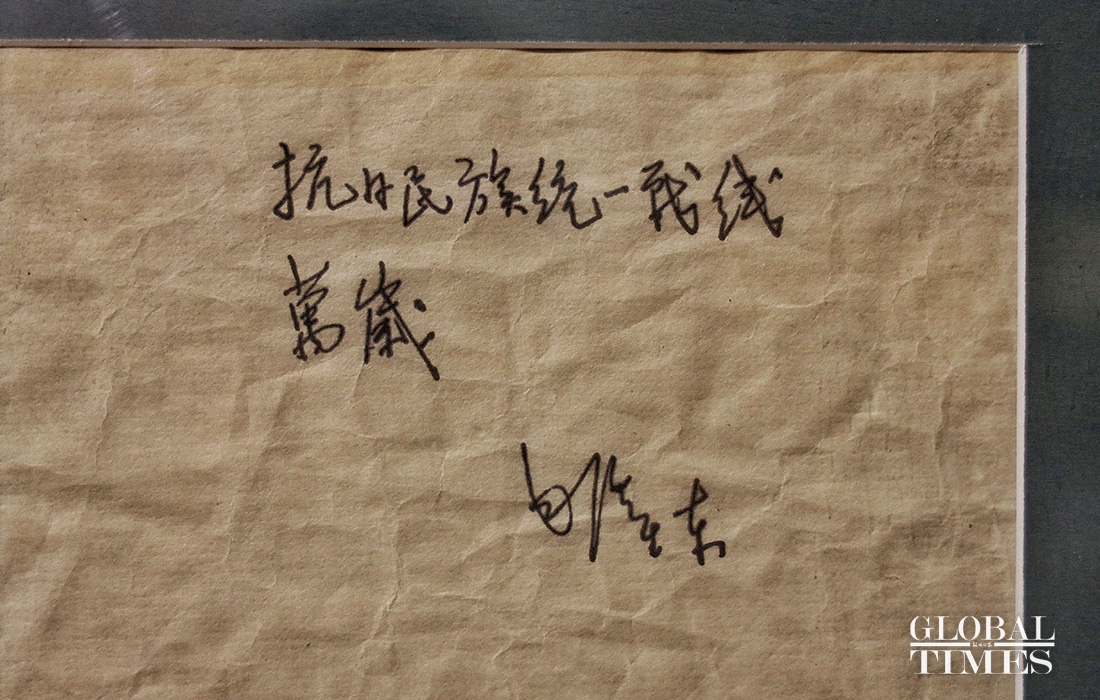 抗日民族统一战线
萬歲
东
GLOBAL
TIMES